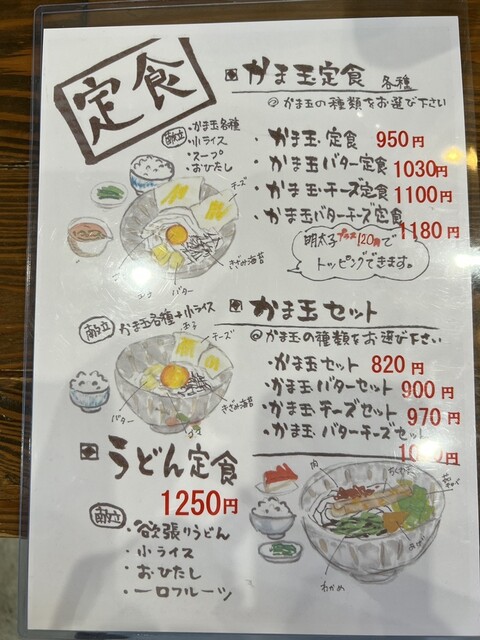 定食
かま玉定食 各種
かま玉の種類をお選び下さい
献立
・かま玉各種
・小ライス
・スープ
・おひたし
・かま玉・定食 950円
・かま玉バター定食 1030円
・かま玉・チーズ定食 1100円
・かま玉バターチーズ定食 1180円
明太子プラス120円で
トッピングできます。
チーズ
きざみ海苔
バター
かま玉セット
献立 かま玉各種+小ライス
かま玉の種類をお選び下さい
・かま玉セット 820円
・かま玉バターセット 900円
・かま玉チーズセット 970円
・かま玉バターチーズセット
玉子
チーズ
きざみ海苔
バター
うどん定食
1250円
献立
・欲張りうどん
・小ライス
・おひたし
・一口フルーツ
肉
ちくわ天
わかめ